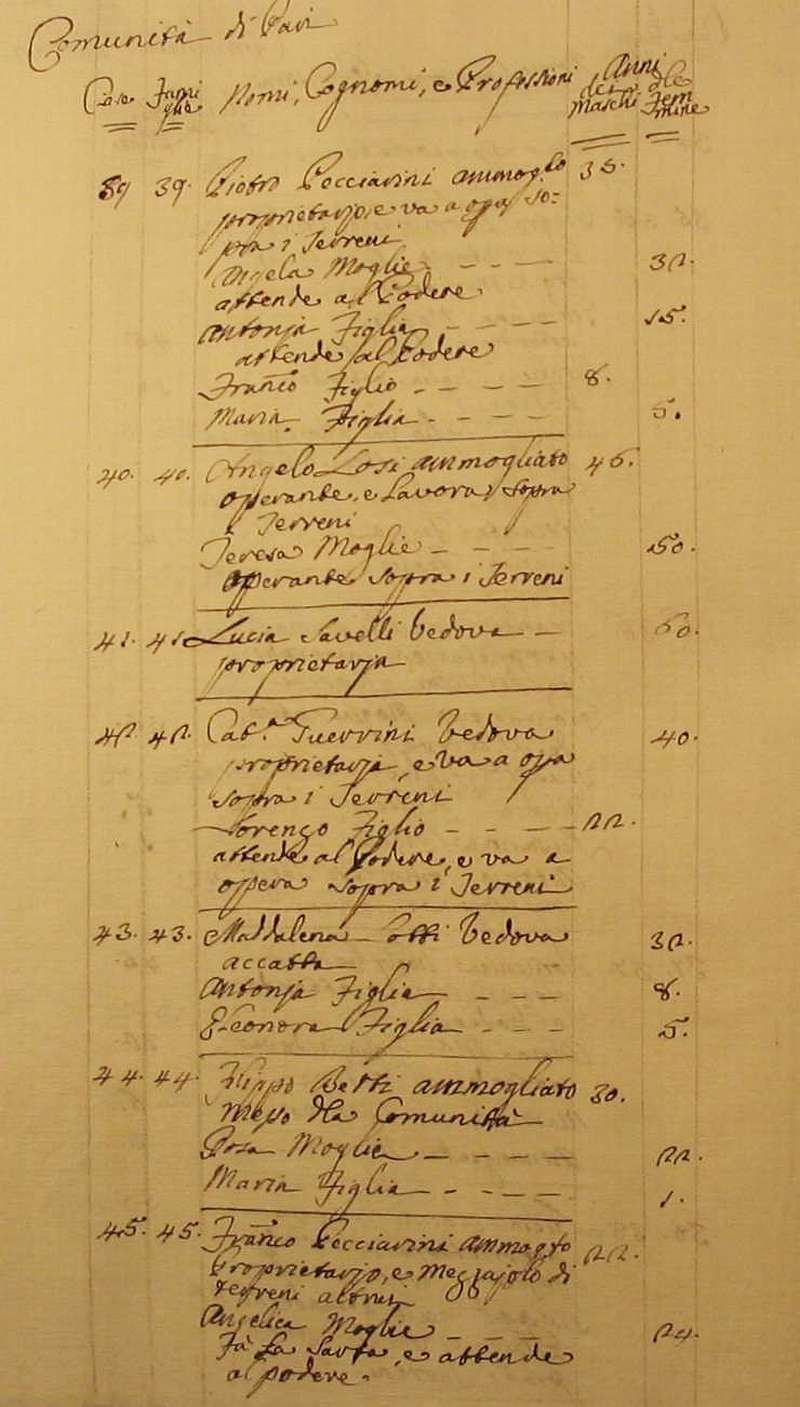 Comunità di Pari
Case Fami Nomi, Cognomi, e Professioni Anni
glie dei delle
Maschi Fem
mine
39 39. Pietro Pecciarini ammog.to 36.
proprietario, e va a opa so:
pra i Terreni
Angela Moglie - - - 32.
attende al Podere
Antonja Figlia - - - 15.
attende al Podere
Franco Figlio - - - - 8.
Maria Figlia - - - - 5.
40. 40. Angelo Losi ammogliato 46.
operante, e Lavora sopra
i Terreni
Teresa Moglie - - - - 50.
Operante sopra i Terreni
41. 41. Lucia Savelli Vedova - - 60.
proprietarja
42 42. Cat.a Guerrini Vedova 40.
proprietarja, e va a opa
sopra i Terreni
Lorenzo Figlio - - - - 22.
attende al Podere, e va a
opera sopra i Terreni
43. 43. Maddalena Vedova 32.
accatta
Antonja Figlia - - - 8.
Eleonora Figlia - - - 5.
44. 44. Filippo Betti ammogliato 30.
Messo della Comunità
Rosa Moglie - - - - 22.
Maria Figlia - - - - 1.
45. 45. Franco Pecciarini ammogto 22.
Proprietarjo, e Mezzajolo di
terreni altrui
Angelica Moglie - - - 24.
Fà La Sarta, e attende
al podere.